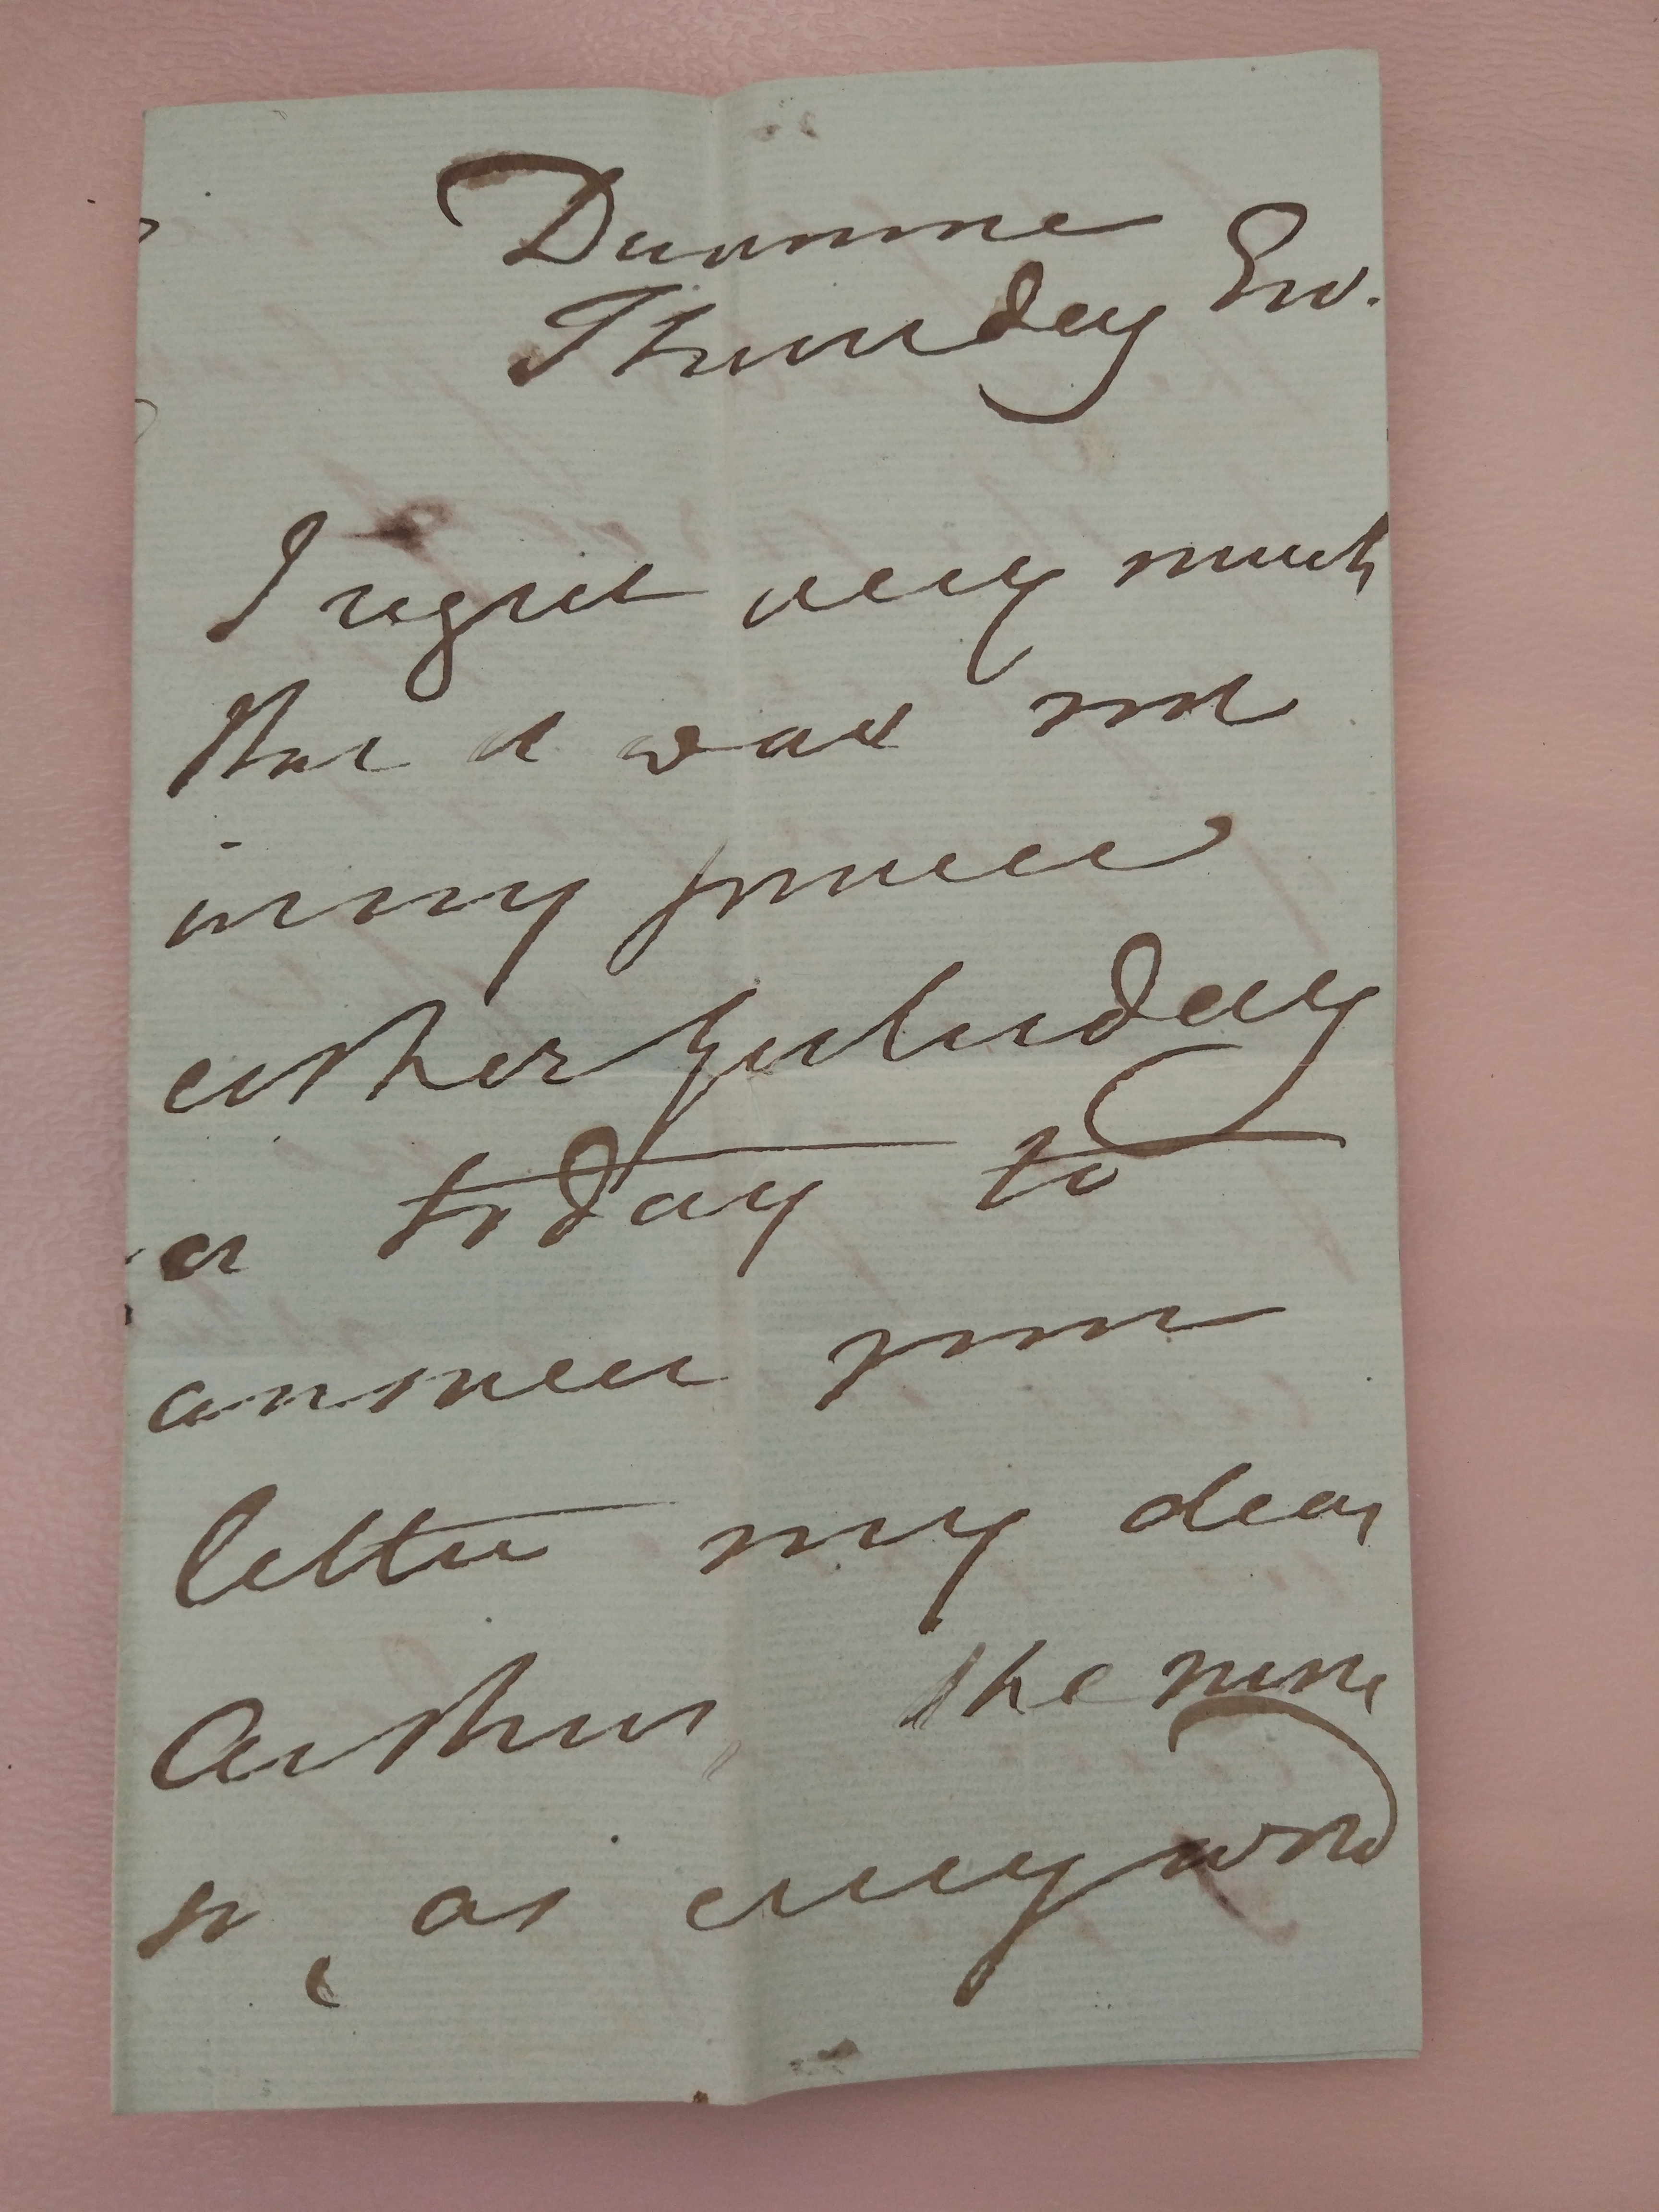 Dunmore
Thursday Eve.
I regret very much
that it was not
in my power
either yesterday
or today to
answer your
letter my dear
Arthur, the more
so, as every word